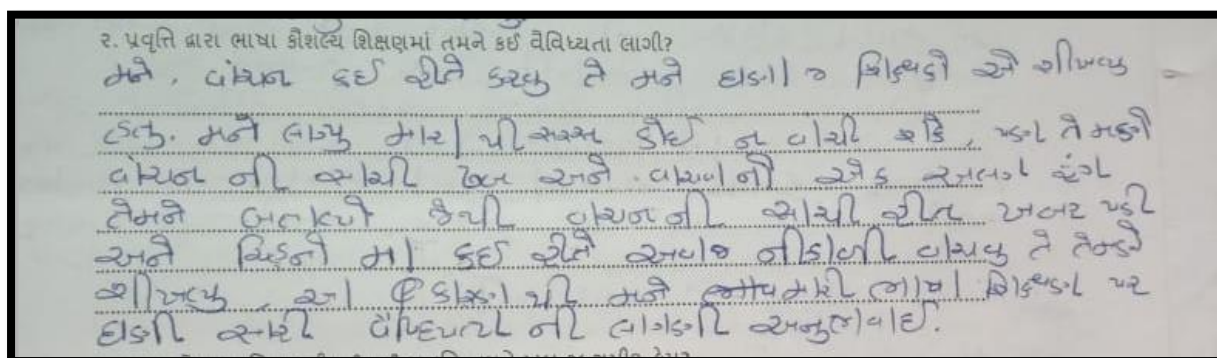 ૨. પ્રવૃત્તિ દ્વારા ભાષા કૌશલ્ય શિક્ષણમાં તમને કઈ વૈવિધ્યતા લાગી?
મને. વાંચન કઈ રીતે કરવુ તે મને ઘણા જ શિક્ષકો એ શીખવ્યુ
હતુ. મને લાગ્યુ મારા થી સરસ કોઈ ન વાંચી શકે, પણ તેમણે
વાંચન ની સાચી ઢબ અને વાચનનો એક અલગ રંગ
તેમને બતાવ્યો જેથી વાંચનની સાચી રીત ખબર પડી
અને ચિહ્નો મા કઈ રીતે અવાજ નીકાળી વાંચવુ તે તેમણે
શીખવ્યુ, આ કારણ થી મને મારી ભાષા શિક્ષણ પર
ઘણી સારી વૈવિધ્યતા ની લાગણી અનુભવાઈ.